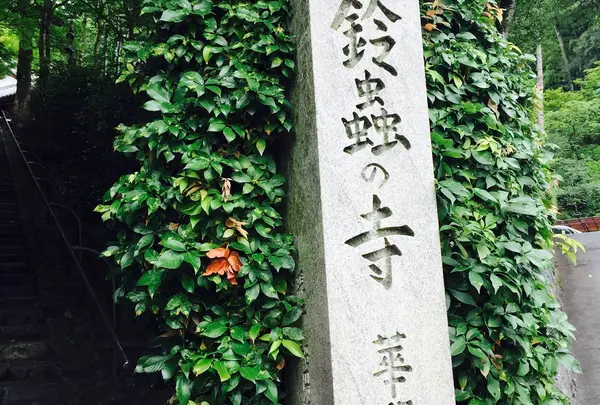 鈴蟲の寺 華